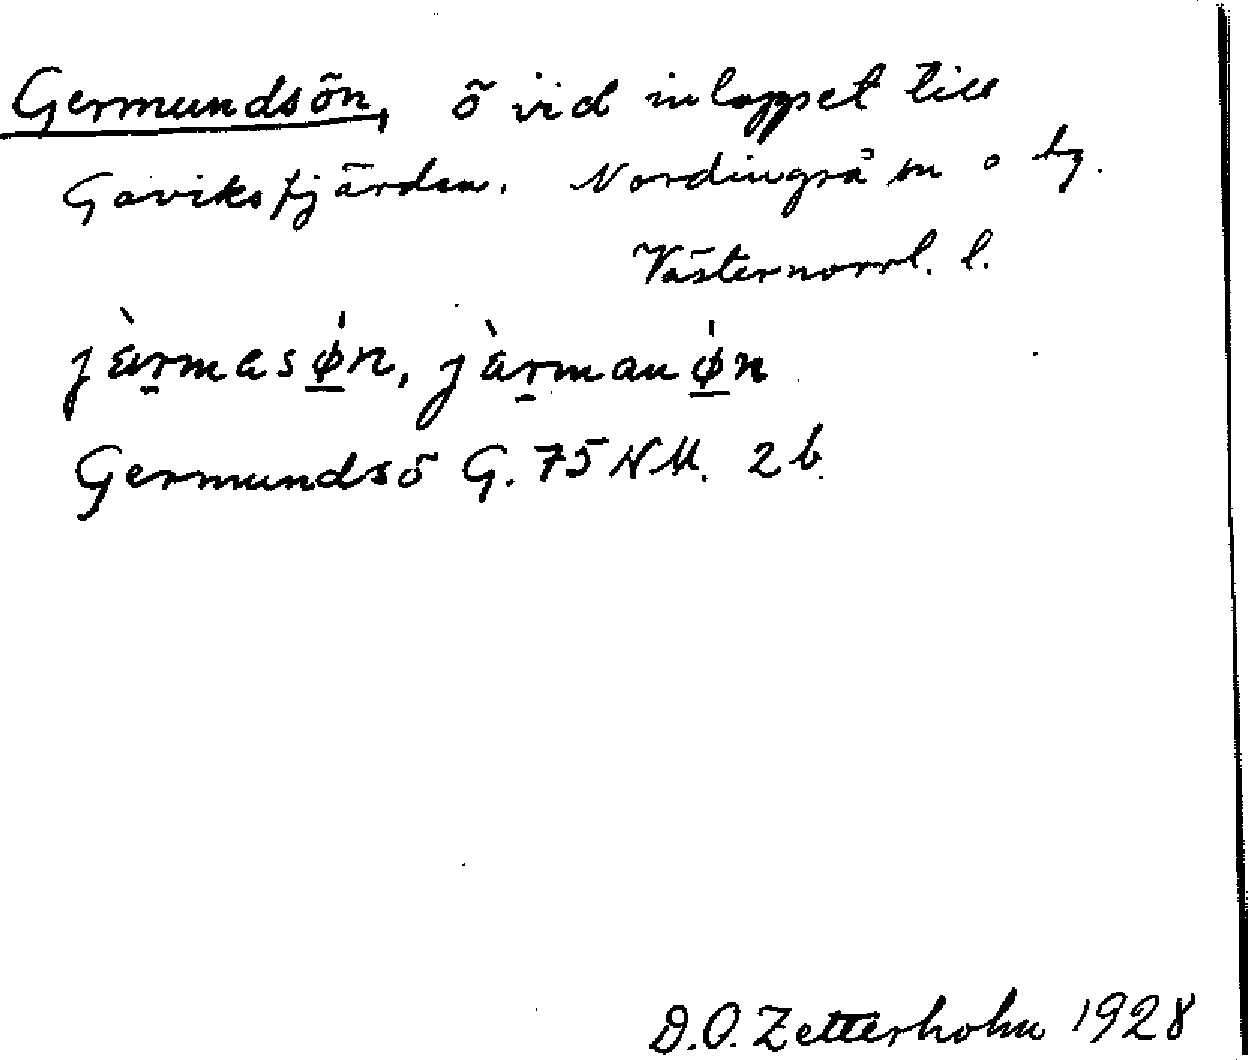 Germundsön, ö vid inloppet till
Gaviksfjärden. Nordingrå sn o tg.
Västernorrl. l.
jàrmasǿn, jàrmanǿn
Germundsö G. 75 NM. 2 b.
D.O. Zetterholm 1928